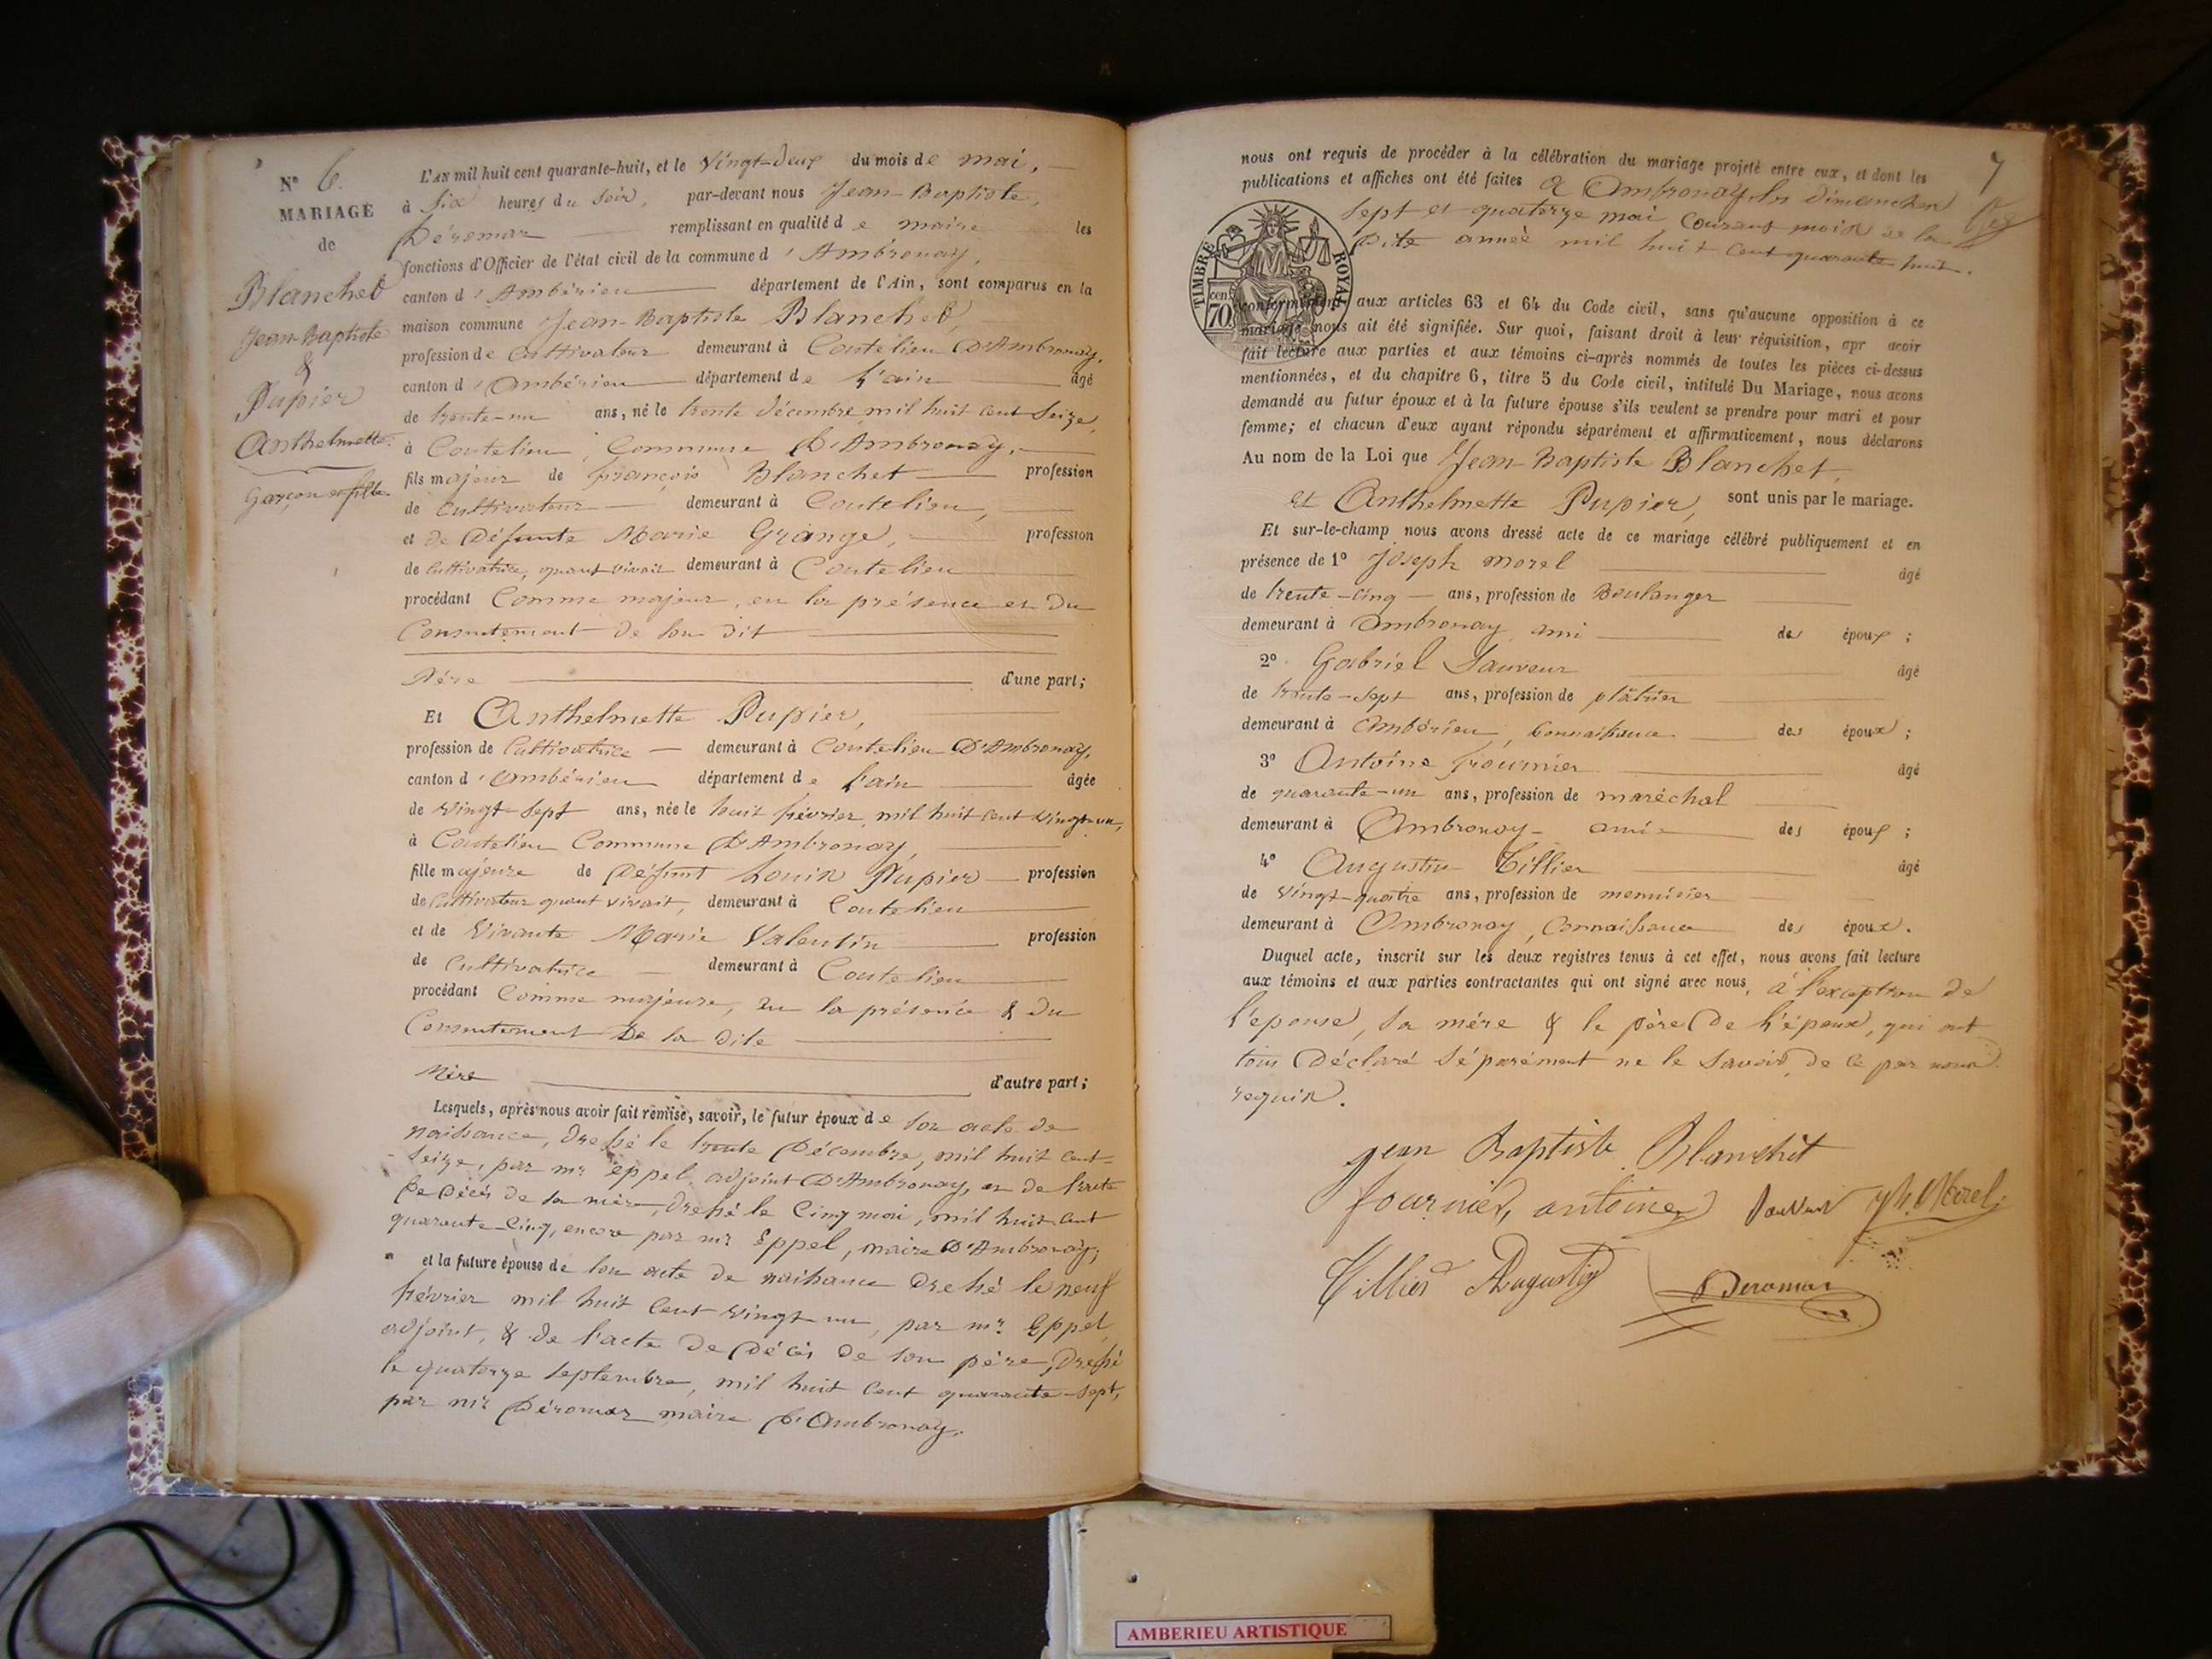 N° 6.
MARIAGE
de
Blanchet
Jean-Baptiste
&
Pupier
Anthelmette.
Garçon et fille.
L'AN mil huit cent quarante-huit, et le vingt-deux du mois de mai,
à six heures du soir, par-devant nous Jean-Baptiste,
Déromas remplissant en qualité de maire les
fonctions d'Officier de l'état civil de la commune d'Ambronay,
canton d'Ambérieu département de l'Ain, sont comparus en la
maison commune Jean-Baptiste Blanchet,
profession de cultivateur demeurant à Coutelieu D'Ambronay,
canton d'Ambérieu département de l'ain âgé
de trente-un ans, né le trente décembre mil huit cent seize,
à Coutelieu, Commune D'Ambronay,
fils majeur de françois Blanchet profession
de cultivateur demeurant à Coutelieu,
et de Défunte Marie Grange, profession
de cultivatrice, quant vivait demeurant à Coutelieu
procédant Comme majeur, en la présence et du
Consentement de son dit
Père d'une part;
Et Anthelmette Pupier,
profession de Cultivatrice demeurant à Coutelieu D'Ambronay,
canton d'Ambérieu département de l'ain âgée
de vingt-sept ans, née le huit février mil huit cent vingt-un,
à Coutelieu Commune D'Ambronay,
fille majeure de Défunt Louis Pupier profession
de Cultivateur quant vivait, demeurant à Coutelieu
et de Vivante Marie Valentin profession
de Cultivatrice demeurant à Coutelieu
procédant Comme majeure, en la présence & du
Consentement De sa dite
Mère d'autre part;
Lesquels, après nous avoir fait remise, savoir, le futur époux de son acte de
naissance, Dressé le trente Décembre, mil huit cent-
seize, par mr eppel, adjoint D'Ambronay, et de l'acte
De Décès de sa mère, Dressé le Cinq mai, mil huit cent
quarante-cinq, encore par mr Eppel, maire D'Ambronay;
et la future épouse de son acte de naissance Dressé le neuf
février mil huit Cent vingt-un, par mr Eppel
adjoint, & de l'acte De Décès De son père, Dressé
le quatorze septembre, mil huit Cent quarante-sept,
par mr Déromas maire D'Ambronay.
7
nous ont requis de procéder à la célébration du mariage projeté entre eux, et dont les
publications et affiches ont été faites à Ambronay, les Dimanches
sept et quatorze mai courant mois de la
Dite année mil huit Cent quarante huit.
TIMBRE ROYAL
70 cen.
conformément aux articles 63 et 64 du Code civil, sans qu'aucune opposition à ce
mariage nous ait été signifiée. Sur quoi, faisant droit à leur réquisition, apr avoir
fait lecture aux parties et aux témoins ci-après nommés de toutes les pièces ci-dessus
mentionnées, et du chapitre 6, titre 5 du Code civil, intitulé Du Mariage, nous avons
demandé au futur époux et à la future épouse s'ils veulent se prendre pour mari et pour
femme; et chacun d'eux ayant répondu séparément et affirmativement, nous déclarons
Au nom de la Loi que Jean-Baptiste Blanchet,
et Anthelmette Pupier, sont unis par le mariage.
Et sur-le-champ nous avons dressé acte de ce mariage célébré publiquement et en
présence de 1° Joseph morel âgé
de trente-cinq ans, profession de Boulanger
demeurant à Ambronay ami des époux;
2° Gabriel Sauveur âgé
de trente-sept ans, profession de plâtrier
demeurant à Ambérieu, Connaissance des époux;
3° Antoine Fournier âgé
de quarante-un ans, profession de maréchal
demeurant à Ambronay ami des époux;
4° Augustin Tillier âgé
de vingt-quatre ans, profession de menuisier
demeurant à Ambronay, Connaissance des époux.
Duquel acte, inscrit sur les deux registres tenus à cet effet, nous avons fait lecture
aux témoins et aux parties contractantes qui ont signé avec nous, à l'exception de
l'épouse, sa mère & le père De l'époux, qui ont
tous Déclaré séparément ne le savoir, de ce par nous
requis.
jean Baptiste Blanchet
fournier, antoine Sauveur jh. Morel
Tillier Augustin Deromas
AMBERIEU ARTISTIQUE